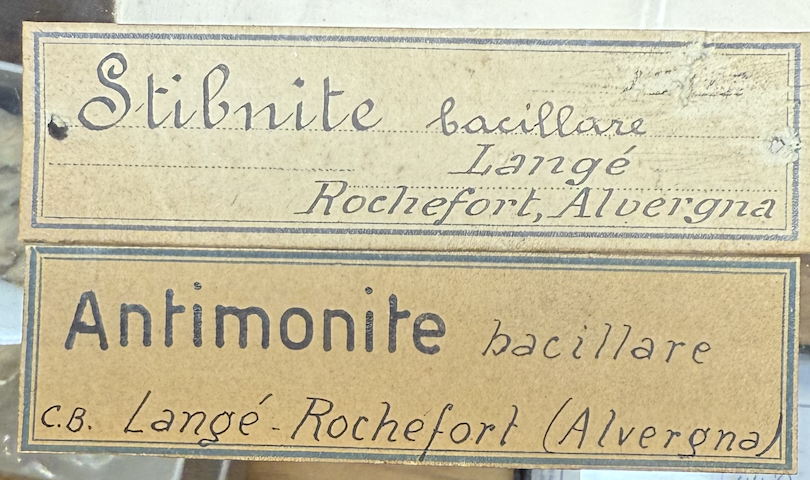 Stibnite bacillare
Langé
Rochefort, Alvergna
Antimonite bacillare
C.B. Langé - Rochefort (Alvergna)